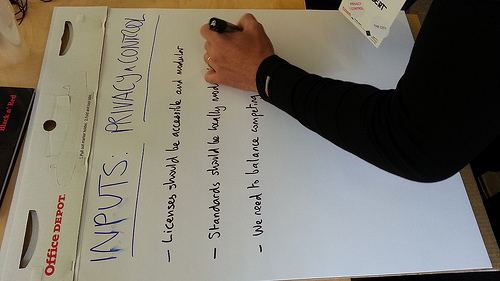 Office DEPOT
INPUTS: PRIVACY & CONTROL
- Licenses should be accessible and modular
- Standards should be really mod
- We need to balance competing
Black n' Red
PRIVACY
CONTROL